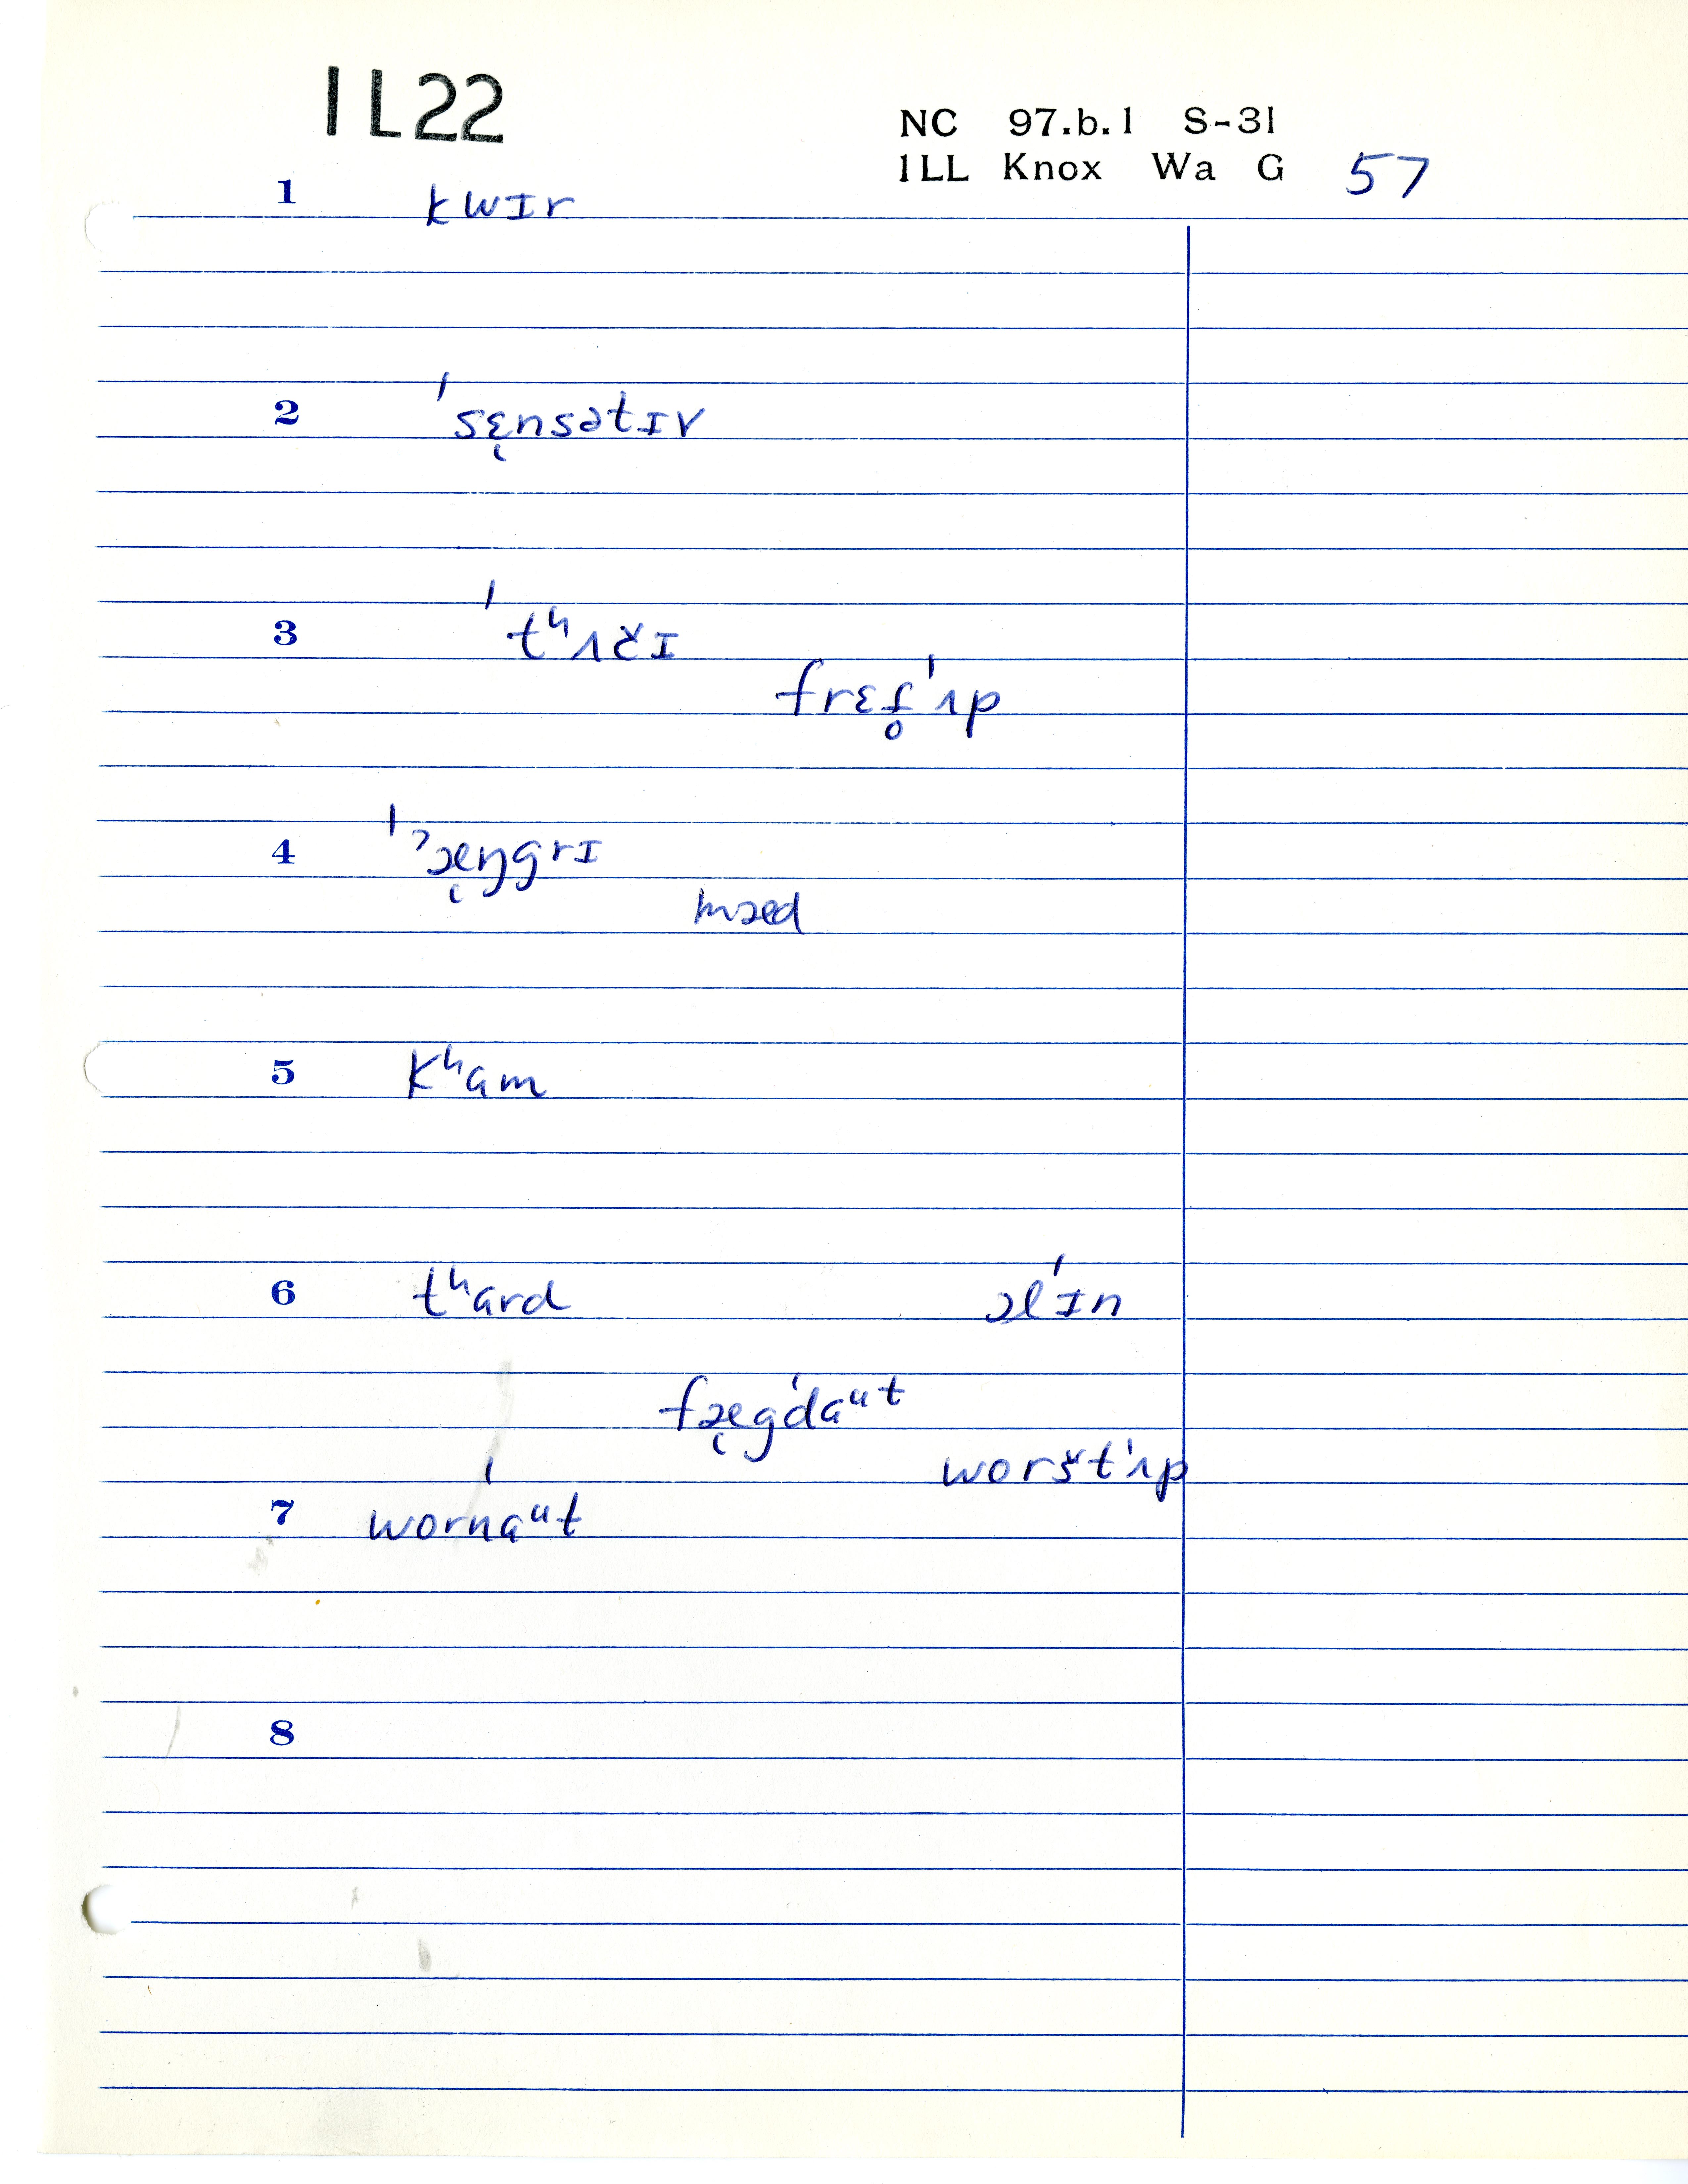 1L22
NC 97.b.1 S-31
1LL Knox Wa G 57
1 kwɪr
2 ˈsɛ̨nsətɪv
3 ˈtʰʌčɪ
frɛf̥ˈʌp
4 ˈʔæ̨ŋgrɪ
mæd
5 kʰɑm
6 tʰɑrd ælˈɪn
fæ̨gˈdɑᵘt
woršt'ʌp
7 wornˈɑᵘt
8